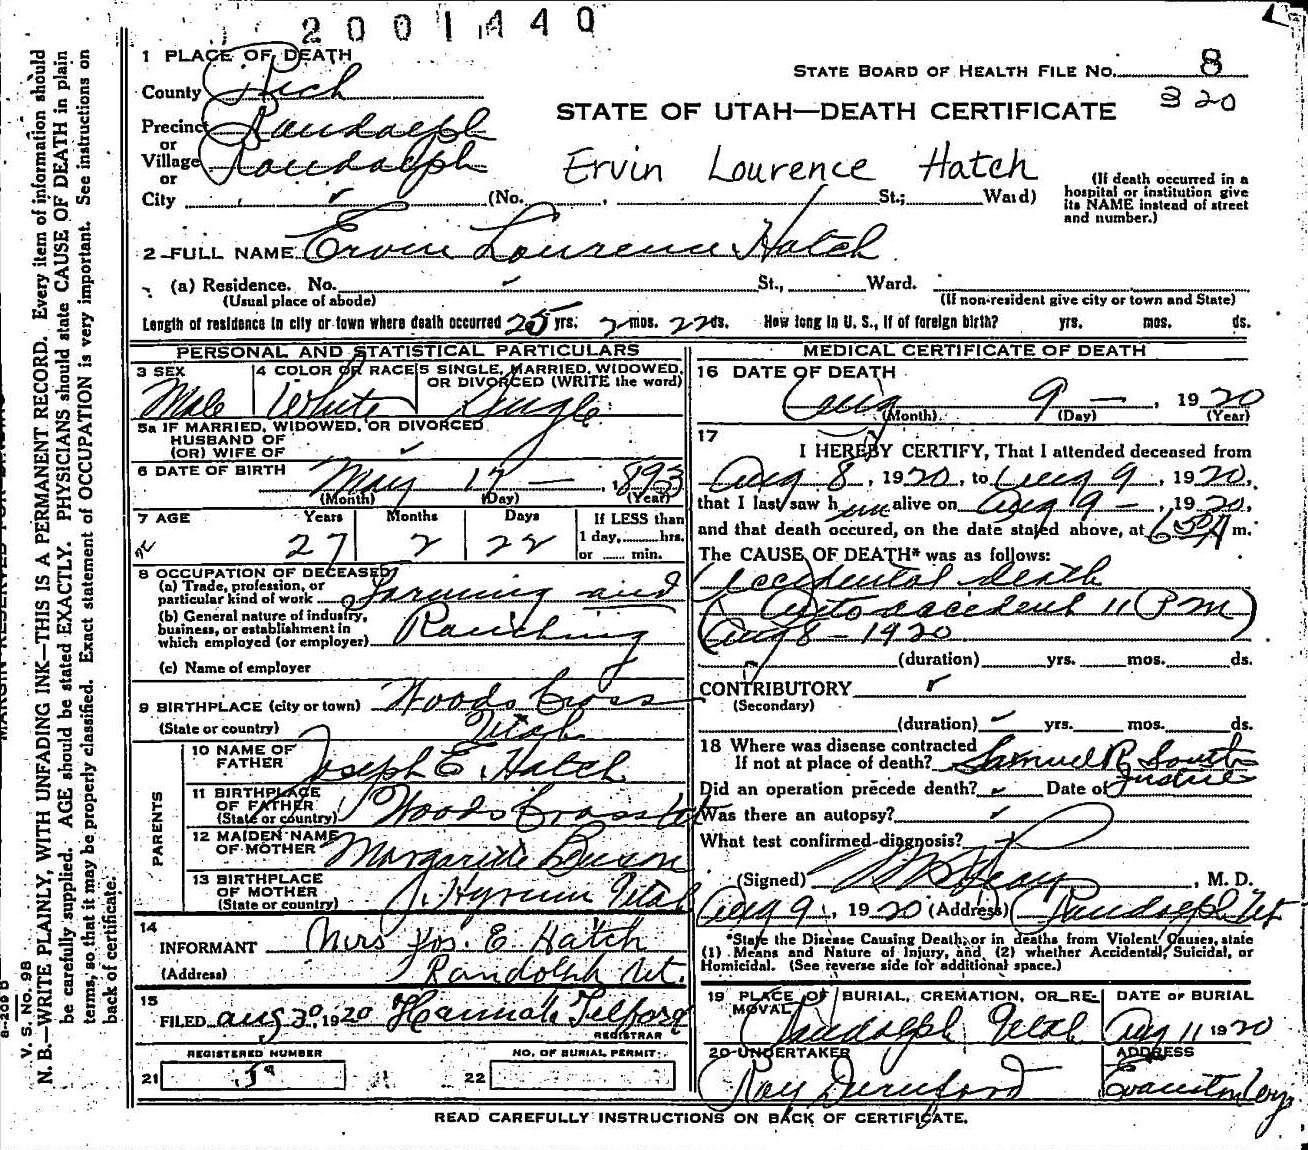 2001440
1 PLACE OF DEATH
STATE BOARD OF HEALTH FILE NO. 8
County Rich
320
STATE OF UTAH—DEATH CERTIFICATE
Precinct Randolph
or
Village Randolph
or
Ervin Lourence Hatch
City (No. , St.; Ward)
(If death occurred in a hospital or institution give its NAME instead of street and number.)
2 FULL NAME Ervin Lourence Hatch
(a) Residence. No. St., Ward.
(Usual place of abode) (If non-resident give city or town and State)
Length of residence in city or town where death occurred 25 yrs. 2 mos. 22 ds. How long in U. S., if of foreign birth? yrs. mos. ds.
PERSONAL AND STATISTICAL PARTICULARS
3 SEX Male
4 COLOR OR RACE White
5 SINGLE, MARRIED, WIDOWED, OR DIVORCED (WRITE the word) Single
5a IF MARRIED, WIDOWED, OR DIVORCED
HUSBAND OF
(OR) WIFE OF
6 DATE OF BIRTH May 17 — , 1893
(Month) (Day) (Year)
7 AGE Years Months Days If LESS than
27 2 22 1 day, hrs.
or min.
8 OCCUPATION OF DECEASED
(a) Trade, profession, or
particular kind of work Farming and
(b) General nature of industry,
business, or establishment in
which employed (or employer) Ranching
(c) Name of employer
9 BIRTHPLACE (city or town) Woods Cross
(State or country) Utah
PARENTS
10 NAME OF FATHER Joseph E. Hatch
11 BIRTHPLACE OF FATHER (State or country) Woods Cross Ut
12 MAIDEN NAME OF MOTHER
13 BIRTHPLACE OF MOTHER (State or country) Hyrum Utah
14
INFORMANT Mrs Jos. E Hatch
(Address) Randolph Ut.
15
FILED Aug 30, 1920 Hannah Telford
REGISTRAR
REGISTERED NUMBER NO. OF BURIAL PERMIT
21 22
MEDICAL CERTIFICATE OF DEATH
16 DATE OF DEATH
Aug 9 — , 1920
(Month) (Day) (Year)
17
I HEREBY CERTIFY, That I attended deceased from
Aug 8, 1920, to Aug 9, 1920,
that I last saw him alive on Aug 9 —, 1920,
and that death occured, on the date stated above, at m.
The CAUSE OF DEATH* was as follows:
Accidental death
(Auto accident 11 P M
Aug 8 - 1920)
(duration) yrs. mos. ds.
CONTRIBUTORY
(Secondary)
(duration) yrs. mos. ds.
18 Where was disease contracted
If not at place of death? Samuel R. South
Did an operation precede death? Date of Justice
Was there an autopsy?
What test confirmed diagnosis?
(Signed) , M. D.
Aug 9, 1920 (Address) Randolph Ut
*State the Disease Causing Death, or in deaths from Violent Causes, state
(1) Means and Nature of Injury, and (2) whether Accidental, Suicidal, or
Homicidal. (See reverse side for additional space.)
19 PLACE OF BURIAL, CREMATION, OR REMOVAL
Randolph Utah
DATE OF BURIAL
Aug 11 1920
20 UNDERTAKER
Roy
ADDRESS
Evanston Wy
READ CAREFULLY INSTRUCTIONS ON BACK OF CERTIFICATE.
V. S. No. 98
N. B.—WRITE PLAINLY, WITH UNFADING INK—THIS IS A PERMANENT RECORD. Every item of information should
be carefully supplied. AGE should be stated EXACTLY. PHYSICIANS should state CAUSE OF DEATH in plain
terms, so that it may be properly classified. Exact statement of OCCUPATION is very important. See instructions on
back of certificate.